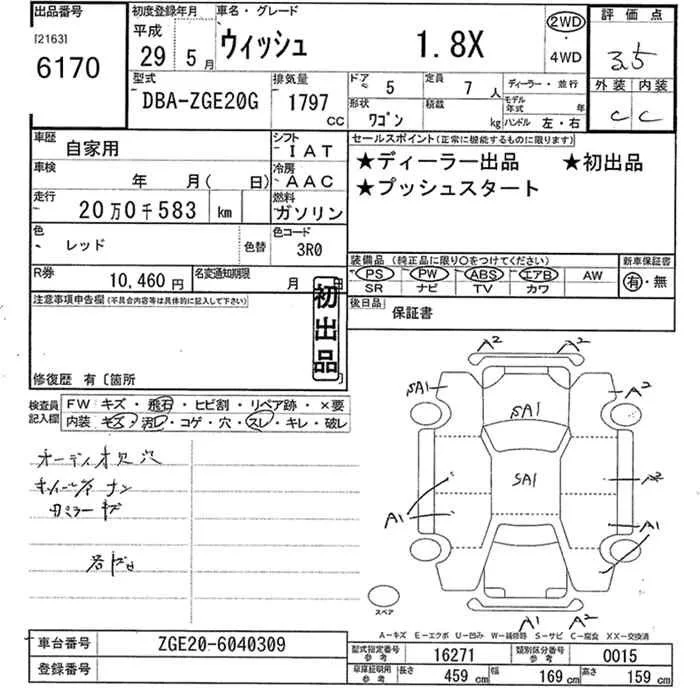 出品番号 初度登録年月 車名・グレード 評価点
[2163] 平成
6170 29 5月 ウィッシュ 1.8X 2WD・4WD 3.5
型式 排気量 ドア 5 定員 7人 ディーラー・並行 外装 内装
DBA-ZGE20G 1797cc 形状 ワゴン 積載 kg モデル年式 年 C C
ハンドル 左・右
車歴 自家用 シフト IAT セールスポイント(正常に機能するものに限ります)
車検 年 月( 日) 冷房 AAC ★ディーラー出品 ★初出品
走行 20万0千583 km 燃料 ガソリン ★プッシュスタート
色 レッド 色替 色コード 3R0
装備品(純正品に限り○をつけてください) 新車保証書
PS PW ABS エアB AW 有・無
SR ナビ TV カワ
R券 10,460円 名変通知期限 月 日
後日品 保証書
注意事項申告欄(不具合内容等は具体的に記入して下さい)
初出品
修復歴 有〔箇所 〕
検査員記入欄
FW キズ・飛石・ヒビ割・リペア跡・×要
内装 キズ・汚レ・コゲ・穴・スレ・キレ・破レ
A2 A2
SA1 A2
SA1
SA1 A2
A1 A1
A1 A2
スペア
A-キズ E-エクボ U-凹み W-補修跡 S-サビ C-腐食 XX-交換済
車台番号 ZGE20-6040309
登録番号
型式指定番号 参考 16271 類別区分番号 参考 0015
車庫証明用 参考 長さ 459cm 幅 169cm 高さ 159cm